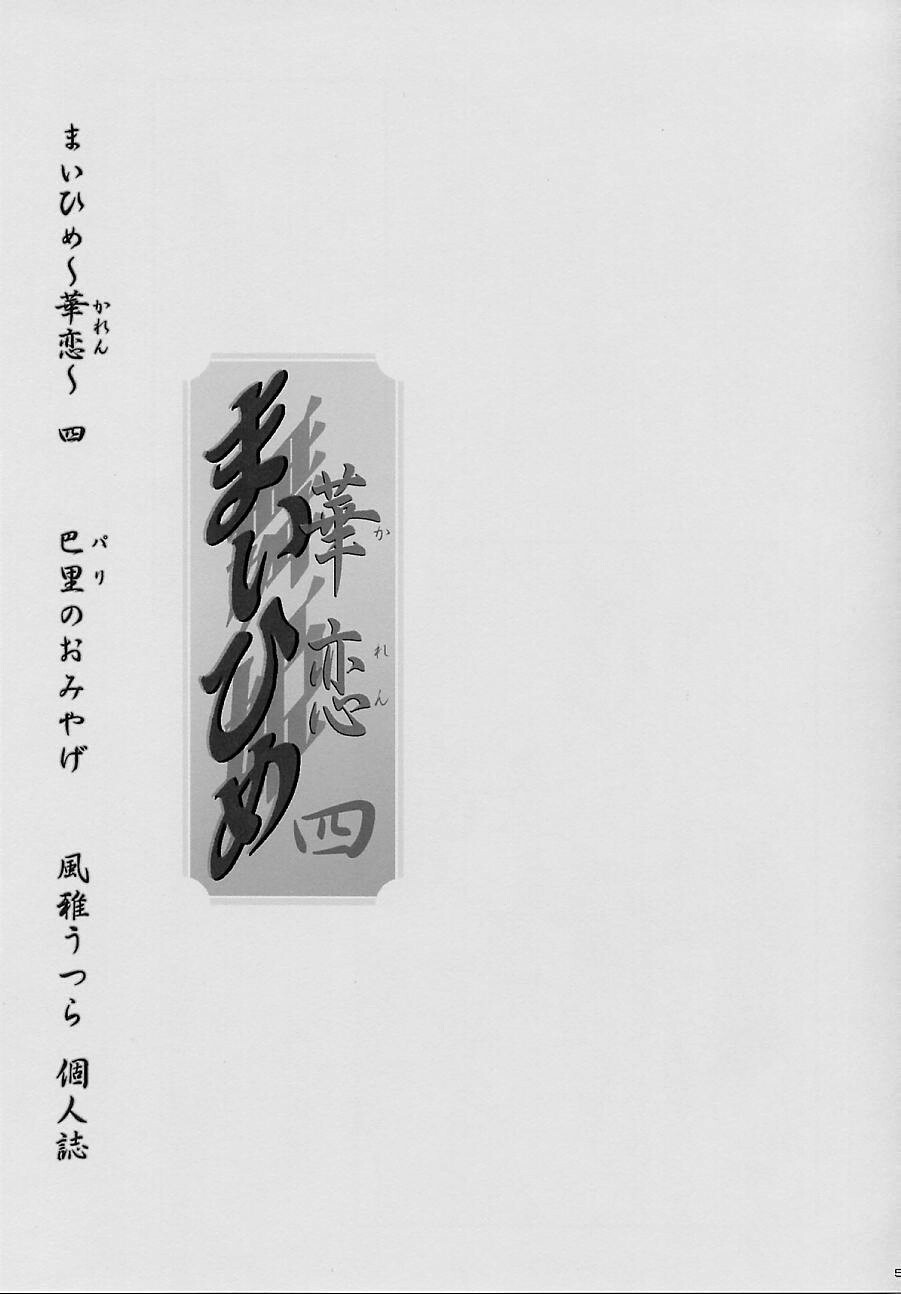 華恋
かれん
四
まいひめ
まいひめ～華恋～ 四 巴里のおみやげ 風雅うつら 個人誌
かれん
パリ
5